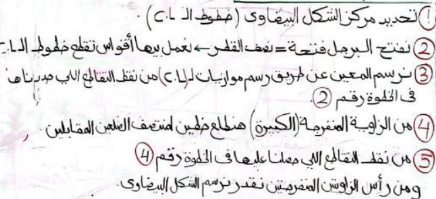 ① تحديد مركز الشكل البيضاوى (خطوط الـ C.L).
② نفتح البرجل فتحة = نصف القطر ← نعمل بيها أقواس تقطع خطوط الـ C.L
③ نرسم المعين عن طريق رسم موازيات لـ (C.L) من نقط التقاطع اللي حددناها
فى الخطوة رقم ②.
④ من الزاوية المنفرجة (الكبيرة) هنطلع خطين لمنتصف الضلعين المقابلين.
⑤ من نقط التقاطع اللي حصلنا عليها فى الخطوة رقم ④
ومن رأس الزاويتين المنفرجتين نقدر نرسم الشكل البيضاوى.